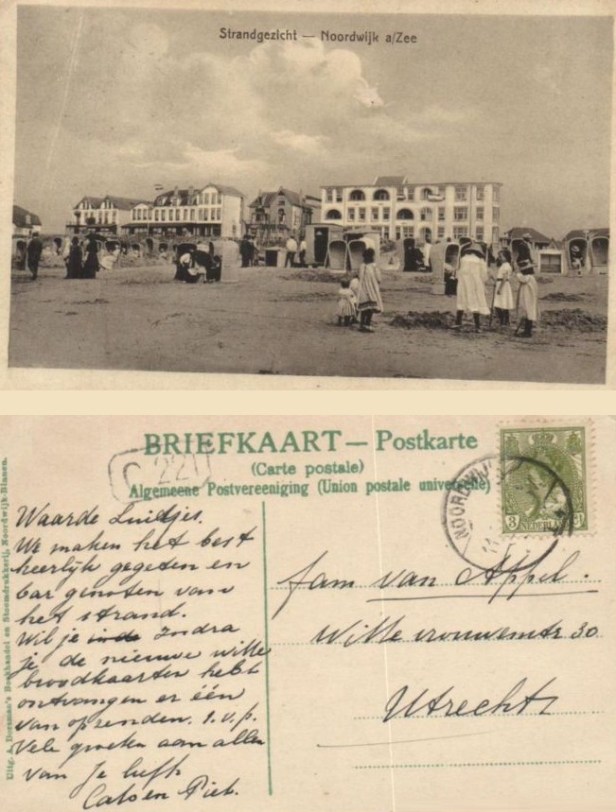 Strandgezicht — Noordwijk a/Zee
BRIEFKAART — Postkarte
(Carte postale)
Algemeene Postvereeniging (Union postale universelle)
C 220
Uitg. A. Boesman's Boekhandel en Steendrukkerij, Noordwijk-Binnen.
Waarde Luidjes.
We maken het best
heerlijk gegeten en
genoten van
het strand.
Wil je zoodra
je de nieuwe witte
broodkaarten hebt
ontvangen er één
van opzenden. s.v.p.
Vele groeten aan allen
van je liefh.
Cato en Piet.
NOORDWIJK
3 NEDERLAND
fam van Appel.
Witte vrouwenstr 30
Utrecht